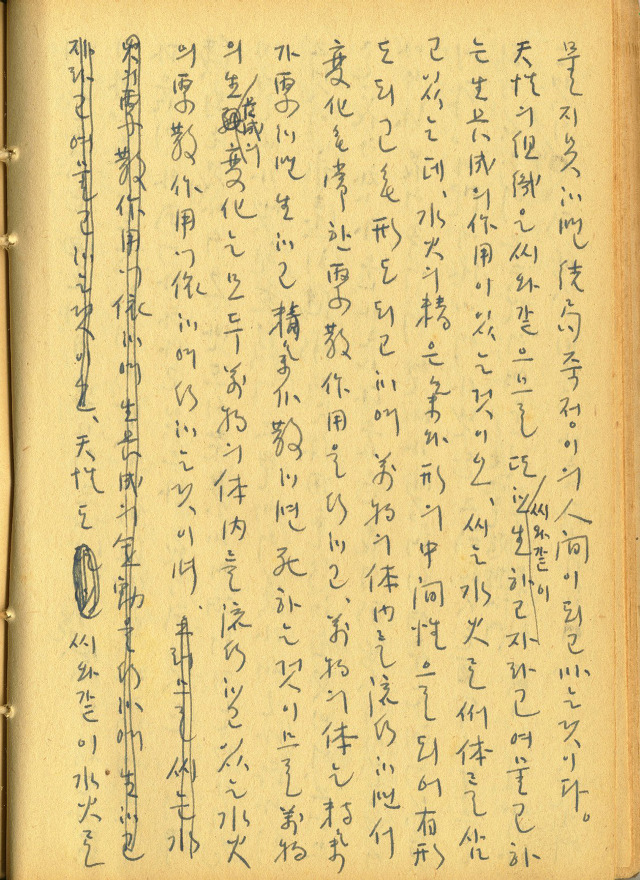 물지못하면 結局 죽정이의 人間이 되고 마는 것이다。
天性의 組織은 씨와 같으므로 또 씨와같이 生하고 자라고 여물고 하
는 生長成의 作用이 있는 것이오、씨는 水火로써 体를 삼
고 있는데、水火의 精은 氣와 形의 中間性으로 되어 有形
도 되고 無形도 되고 하여 萬物의 体內를 流行하면서
變化無常한 聚散作用을 行하고、萬物의 体는 精氣
가 聚하면 生하고 精氣가 散하면 死하는 것이므로 萬物
의 生長成의 變化는 모두 萬物의 体內를 流行하고 있는 水火
의 聚散作用에 依하여 行하는 것이며、 씨는 水
火의 聚散作用에 依하여 生長成의 運動을 行하여 生하고
자라고 여물고 하는 것이오、天性도 씨와 같이 水火로